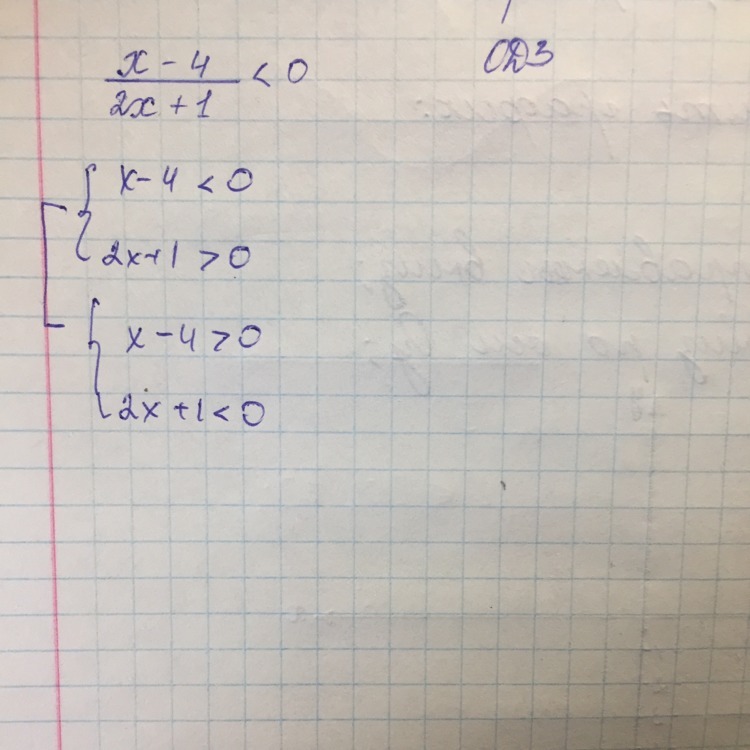 x - 4
2x + 1 < 0
ОДЗ
x - 4 < 0
2x + 1 > 0
x - 4 > 0
2x + 1 < 0